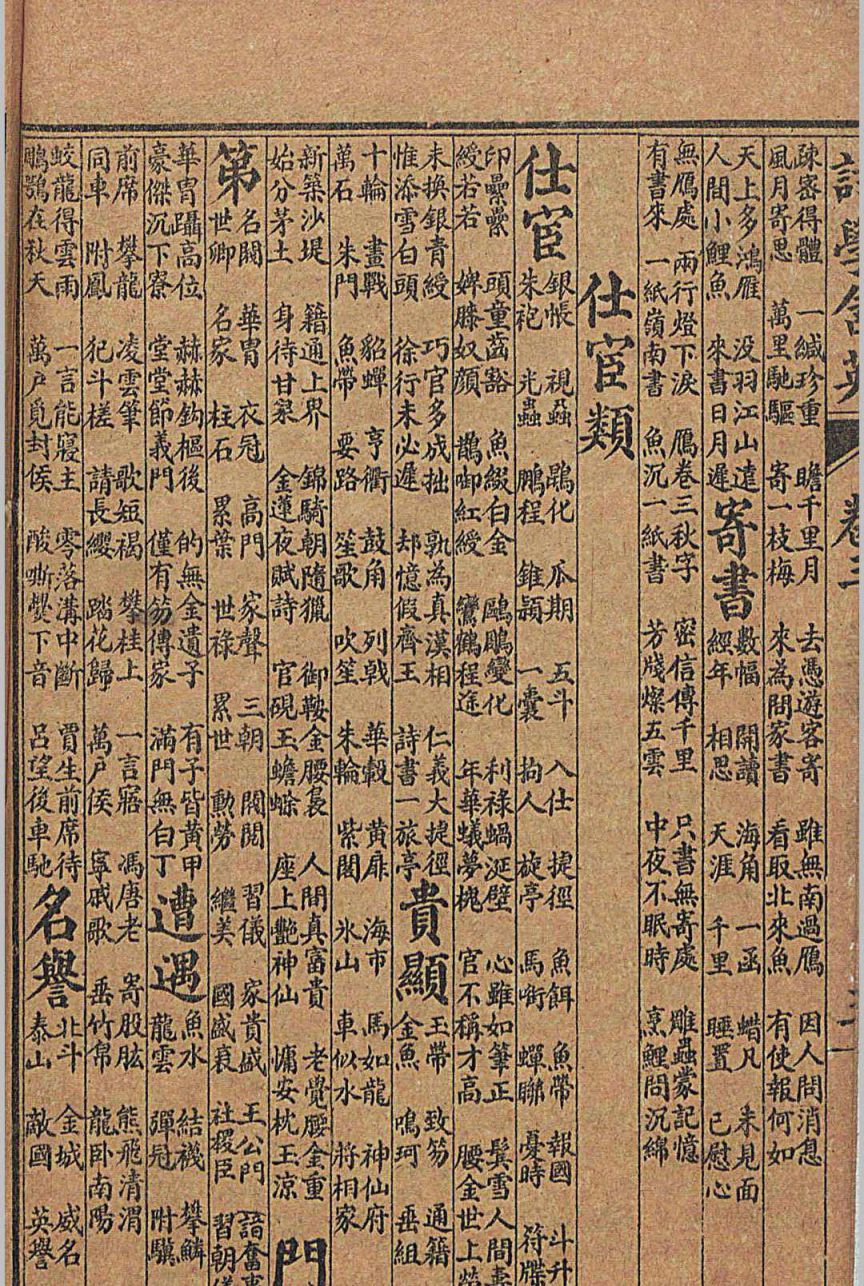 詩學含英 卷三
疎密得體 一緘珍重 瞻千里月 去憑遊客寄 雖無南過鴈 因人問消息
風月寄思 萬里馳驅 寄一枝梅 來為問家書 看取北來魚 有使報何如
天上多鴻雁 没羽江山遠
人間小鯉魚 來書日月遲
寄書
數幅 開讀 海角 一函 蜡凡 未見面
經年 相思 天涯 千里 睡置 已慰心
無鴈處 兩行燈下淚 鴈卷三秋字 密信傳千里 只書無寄處 雕蟲蒙記憶
有書來 一紙嶺南書 魚沉一紙書 芳牋燦五雲 中夜不眠時 烹鯉問沉綿
仕宦類
仕宦
銀帳 視蟲 鵾化 瓜期 五斗 入仕 捷徑 魚餌 魚帶 報國 斗升
朱袍 光蟲 鵬程 錐穎 一囊 拘人 旋亭 馬嘶 蟬聯 憂時 符牒
印纍纍 頭童齒豁 魚綴白金 鷗鵰變化 利祿蝸涎壁 心雖如筆正 鬢雪人間壽
綬若若 婢膝奴顏 鵲啣紅綬 鸞鶴程途 年華蟻夢槐 官不稱才高 腰金世上榮
未換銀青綬 巧官多成拙 孰為真漢相 仁義大捷徑
惟添雪白頭 徐行未必遲 却憶假齊王 詩書一旅亭
貴顯
玉帶 致笏 通籍
金魚 鳴珂 垂組
十輪 畫戟 貂蟬 亨衢 鼓角 列戟 華轂 黃扉 海市 馬如龍 神仙府
萬石 朱門 魚帶 要路 笙歌 吹笙 朱輪 紫閣 氷山 車似水 將相家
新築沙堤 籍通上界 錦騎朝隨獵 御鞍金腰裊 人間真富貴 老覺腰金重
始分茅土 身待甘泉 金蓮夜賦詩 官硯玉蟾蜍 座上艷神仙 慵安枕玉涼
門
第
名閥 華胄 衣冠 高門 家聲 三朝 閥閱 習儀 家貴盛 王公門 諳奮事
世卿 名家 柱石 累葉 世祿 累世 勳勞 繼美 國盛衰 社稷臣 習朝儀
華胄躡高位 赫赫鈞樞後 的無金遺子 有子皆黃甲
豪傑沉下寮 堂堂節義門 僅有笏傳家 滿門無白丁
遭遇
魚水 結襪 攀鱗
龍雲 彈冠 附驥
前席 攀龍 凌雲筆 歌短褐 攀桂上 一言寤 馮唐老 寄股肱 熊飛清渭
同車 附鳳 犯斗槎 請長纓 踏花歸 萬户侯 寧戚歌 垂竹帛 龍卧南陽
蛟龍得雲雨 一言能寢主 零落溝中斷 賈生前席待
鵰鶚在秋天 萬户覓封侯 酸嘶爨下音 呂望後車馳
名譽
北斗 金城 威名
泰山 敵國 英譽